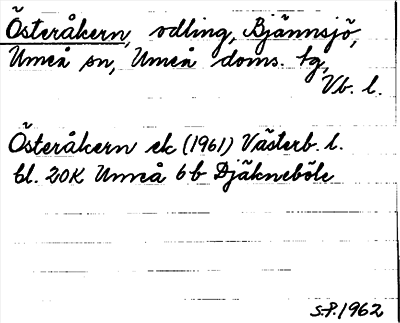 Österåkern, odling, Bjännsjö,
Umeå sn, Umeå doms. tg,
Vb. l.
Österåkern ek (1961) Västerb. l.
bl. 20K Umeå 6 b Djäkneböle
S-P. 1962